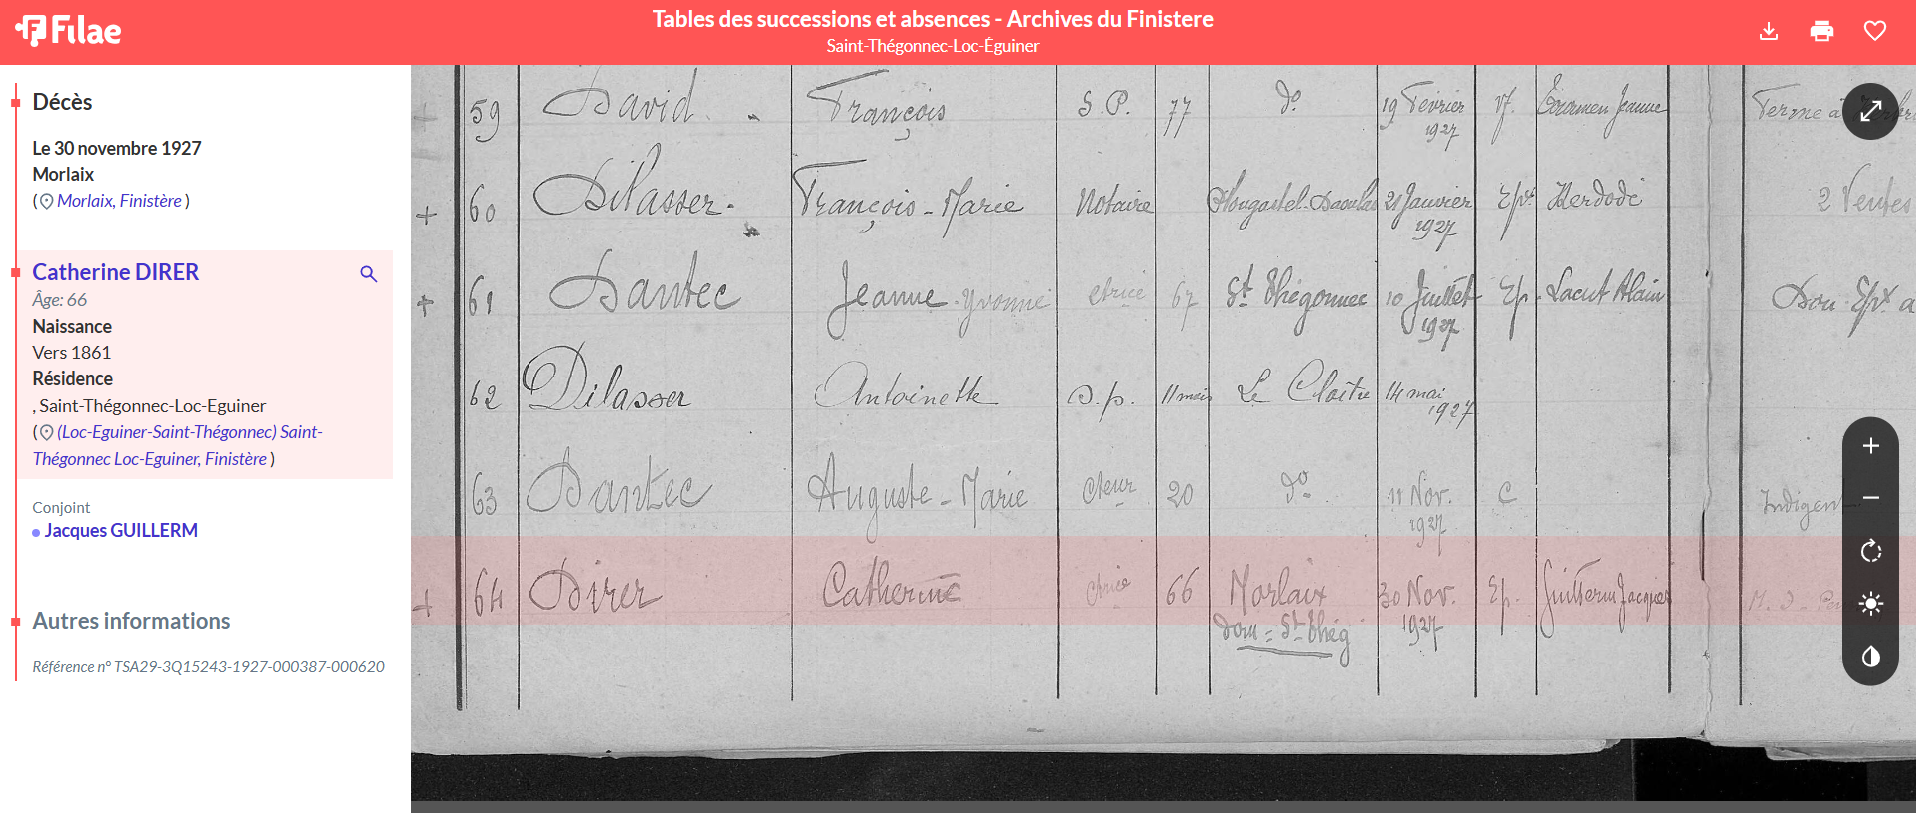 Filae
Tables des successions et absences - Archives du Finistere
Saint-Thégonnec-Loc-Éguiner
Décès
Le 30 novembre 1927
Morlaix
( Morlaix, Finistère )
Catherine DIRER
Âge: 66
Naissance
Vers 1861
Résidence
, Saint-Thégonnec-Loc-Eguiner
( (Loc-Eguiner-Saint-Thégonnec) Saint-
Thégonnec Loc-Eguiner, Finistère )
Conjoint
Jacques GUILLERM
Autres informations
Référence n° TSA29-3Q15243-1927-000387-000620
59 David François S.P. 77 do 19 Février vf. Jeanne Ferme à
1927
+ 60 Dilasser François-Marie Notaire Plougastel-Daoulas 21 Janvier Ep. Kerdodé 2 Ventes
1927
+ 61 Dantec Jeanne Yvonne ctrice 67 St Thégonnec 10 Juillet Ep. Lacut Alain Don Epx a
1927
62 Dilasser Antoinette S.p. 11 mois Le Cloître 14 mai
1927
63 Dantec Auguste-Marie cteur 20 do 11 Nov. C Indigent
1927
+ 64 Direr Catherine ctrice 66 Morlaix 30 Nov. Ep. Guillerm Jacques
dom = St Thég 1927